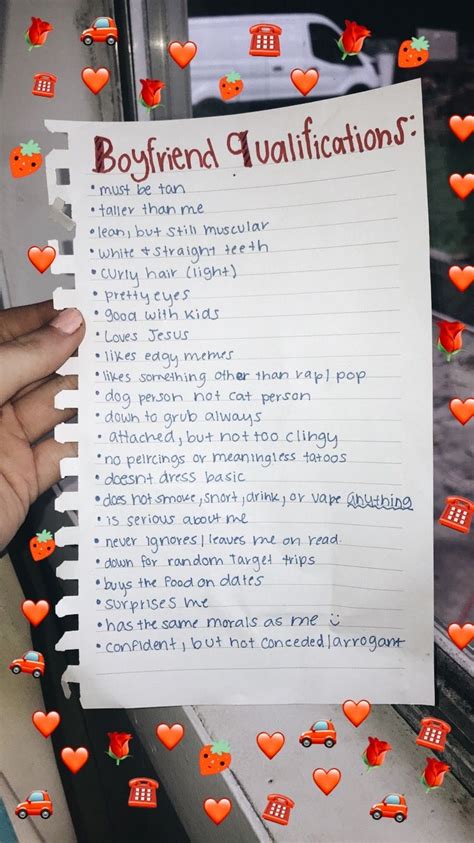 Boyfriend Qualifications:
• must be tan
• taller than me
• lean, but still muscular
• white & straight teeth
• curly hair (light)
• pretty eyes
• good with kids
• Loves Jesus
• likes edgy memes
• likes something other than rap/pop
• dog person not cat person
• down to grub always
• attached, but not too clingy
• no peircings or meaningless tatoos
• doesnt dress basic
• does not smoke, snort, drink, or vape anything
• is serious about me
• never ignores/leaves me on read.
• down for random Target trips
• buys the food on dates
• surprises me
• has the same morals as me :)
• confident, but not conceded/arrogant